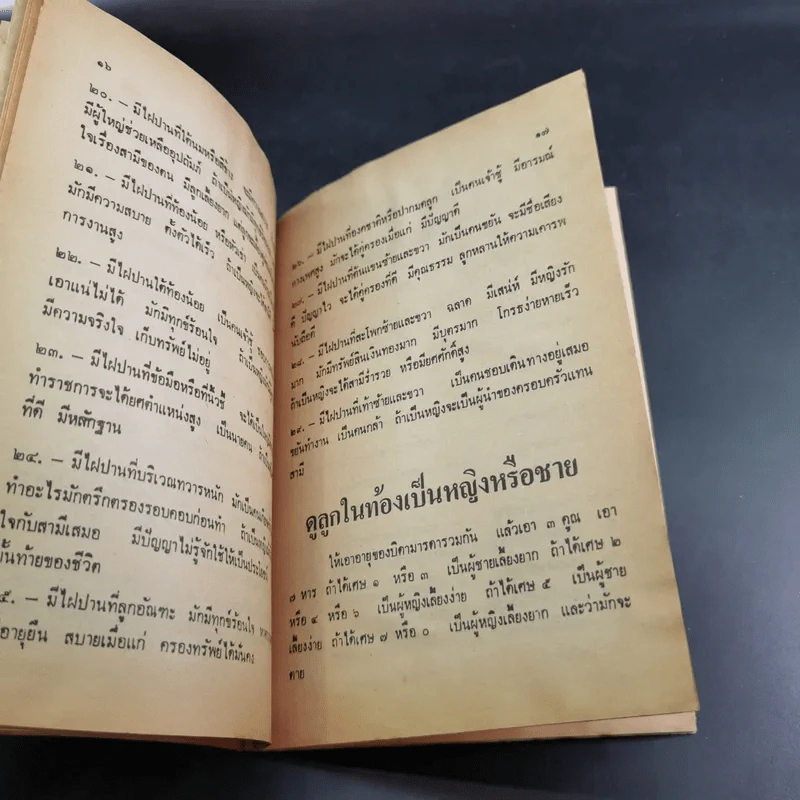 ๑๖
๒๐. — มีไฝปานที่ใต้นมหรือสีข้าง
มีผู้ใหญ่ช่วยเหลืออุปถัมภ์ ถ้าเป็นหญิง
ใจเรื่องสามีของตน มีลูกเลี้ยงยาก
๒๑. — มีไฝปานที่ท้องน้อย หรือหัวเข่า
มักมีความสบาย ตั้งตัวได้เร็ว ถ้าเป็นหญิง
การงานสูง
๒๒. — มีไฝปานใต้ท้องน้อย เป็นคนเจ้าชู้
เอาแน่ไม่ได้ มักมีทุกข์ร้อนใจ ถ้าเป็นหญิง
มีความจริงใจ เก็บทรัพย์ไม่อยู่
๒๓. — มีไฝปานที่ข้อมือหรือที่นิ้วชี้ จะได้เป็น
ทำราชการจะได้ยศตำแหน่งสูง เป็นนายคน
ที่ดี มีหลักฐาน
๒๔. — มีไฝปานที่บริเวณทวารหนัก มักเป็นคน
ทำอะไรมักตรึกตรองรอบคอบก่อนทำ ถ้าเป็นหญิง
ใจกับสามีเสมอ มีปัญญาไม่รู้จักใช้ให้เป็นประโยชน์
บั้นท้ายของชีวิต
๕. — มีไฝปานที่ลูกอัณฑะ มักมีทุกข์ร้อนใจ
อายุยืน สบายเมื่อแก่ ครองทรัพย์ได้มั่นคง
๑๗
๒๖. — มีไฝปานที่องคชาติหรือปากมดลูก เป็นคนเจ้าชู้ มีอารมณ์
ทางเพศสูง มักจะได้คู่ครองเมื่อแก่ มีปัญญาดี
๒๗. — มีไฝปานที่ต้นแขนซ้ายและขวา มักเป็นคนขยัน จะมีชื่อเสียง
ดี ปัญญาไว จะได้คู่ครองที่ดี มีคุณธรรม ลูกหลานให้ความเคารพ
นับถือดี
๒๘. — มีไฝปานที่สะโพกซ้ายและขวา ฉลาด มีเสน่ห์ มีหญิงรัก
มาก มักมีทรัพย์สินเงินทองมาก มีบุตรมาก โกรธง่ายหายเร็ว
ถ้าเป็นหญิงจะได้สามีร่ำรวย หรือมียศศักดิ์สูง
๒๙. — มีไฝปานที่เท้าซ้ายและขวา เป็นคนชอบเดินทางอยู่เสมอ
ขยันทำงาน เป็นคนกล้า ถ้าเป็นหญิงจะเป็นผู้นำของครอบครัวแทน
สามี
ดูลูกในท้องเป็นหญิงหรือชาย
ให้เอาอายุของบิดามารดารวมกัน แล้วเอา ๓ คูณ เอา
๗ หาร ถ้าได้เศษ ๑ หรือ ๓ เป็นผู้ชายเลี้ยงยาก ถ้าได้เศษ ๒
หรือ ๔ หรือ ๖ เป็นผู้หญิงเลี้ยงง่าย ถ้าได้เศษ ๕ เป็นผู้ชาย
เลี้ยงง่าย ถ้าได้เศษ ๗ หรือ ๐ เป็นผู้หญิงเลี้ยงยาก และว่ามักจะ
ตาย